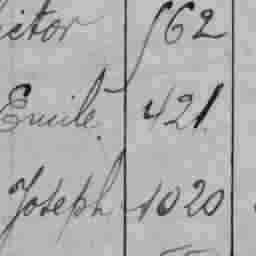 ictor 562
Emile 421
Joseph 1020